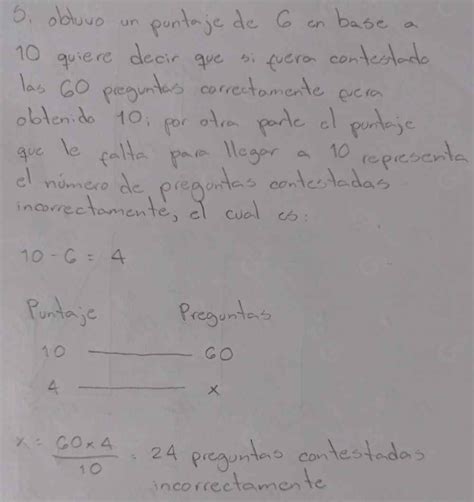 Si obtuvo un puntaje de 6 en base a
10 quiere decir que si fuera contestado
las 60 preguntas correctamente fuera
obtenido 10; por otra parte el puntaje
que le falta para llegar a 10 representa
el número de preguntas contestadas
incorrectamente, el cual es:
10 - 6 = 4
Puntaje Preguntas
10 —— 60
4 —— x
x = 60 x 4 / 10 = 24 preguntas contestadas
incorrectamente